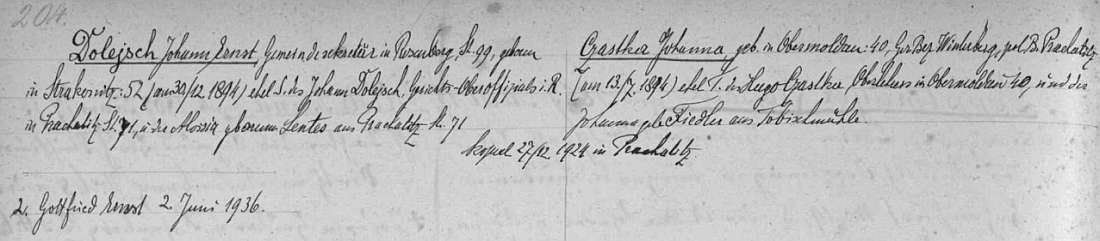 204.
Dolejsch Johann Ernst, Gemeindesekretär in Rosenberg, St. 99, geboren
in Strakonitz: 52 (am 30/12. 1894) ehel. S. des Johann Dolejsch, Gerichts-Oberoffizials i. R.
in Prachatitz St. 71, u. der Aloisia geborenen Lentes aus Prachatitz N. 71
Czastka Johanna, geb. in Obermoldau: 40, Ger. Bez. Winterberg, pol. B. Prachatitz
(am 13./7. 1894) ehel. T. des Hugo Czastka, Oberlehrers in Obermoldau 40, und der
Johanna geb. Fiedler aus Tobischmühle.
kopul. 27/12 1924 in Prachatitz.
2. Gottfried Ernst 2. Juni 1936.